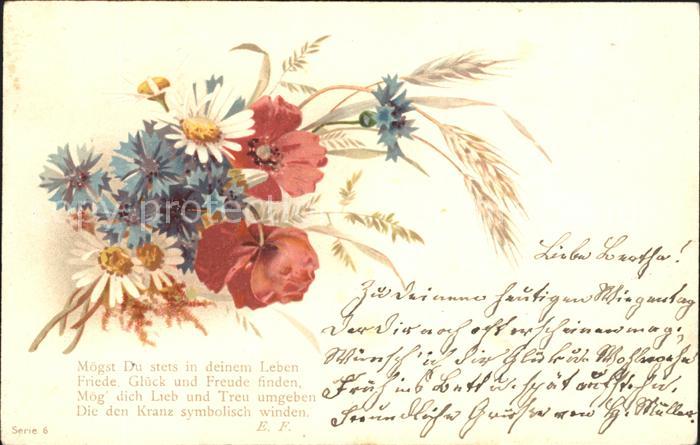 Liebe Bertha!
Zu deinem heutigen Wiegentag
der dir noch oft erscheinen mag,
Wünsch' ich dir Glück u. Wohlergehn
Früh ins Bett u. spät aufstehn.
Freundliche Grüße von H. Müller
Mögst Du stets in deinem Leben
Friede, Glück und Freude finden,
Mög' dich Lieb und Treu umgeben
Die den Kranz symbolisch winden.
E. F.
Serie 6